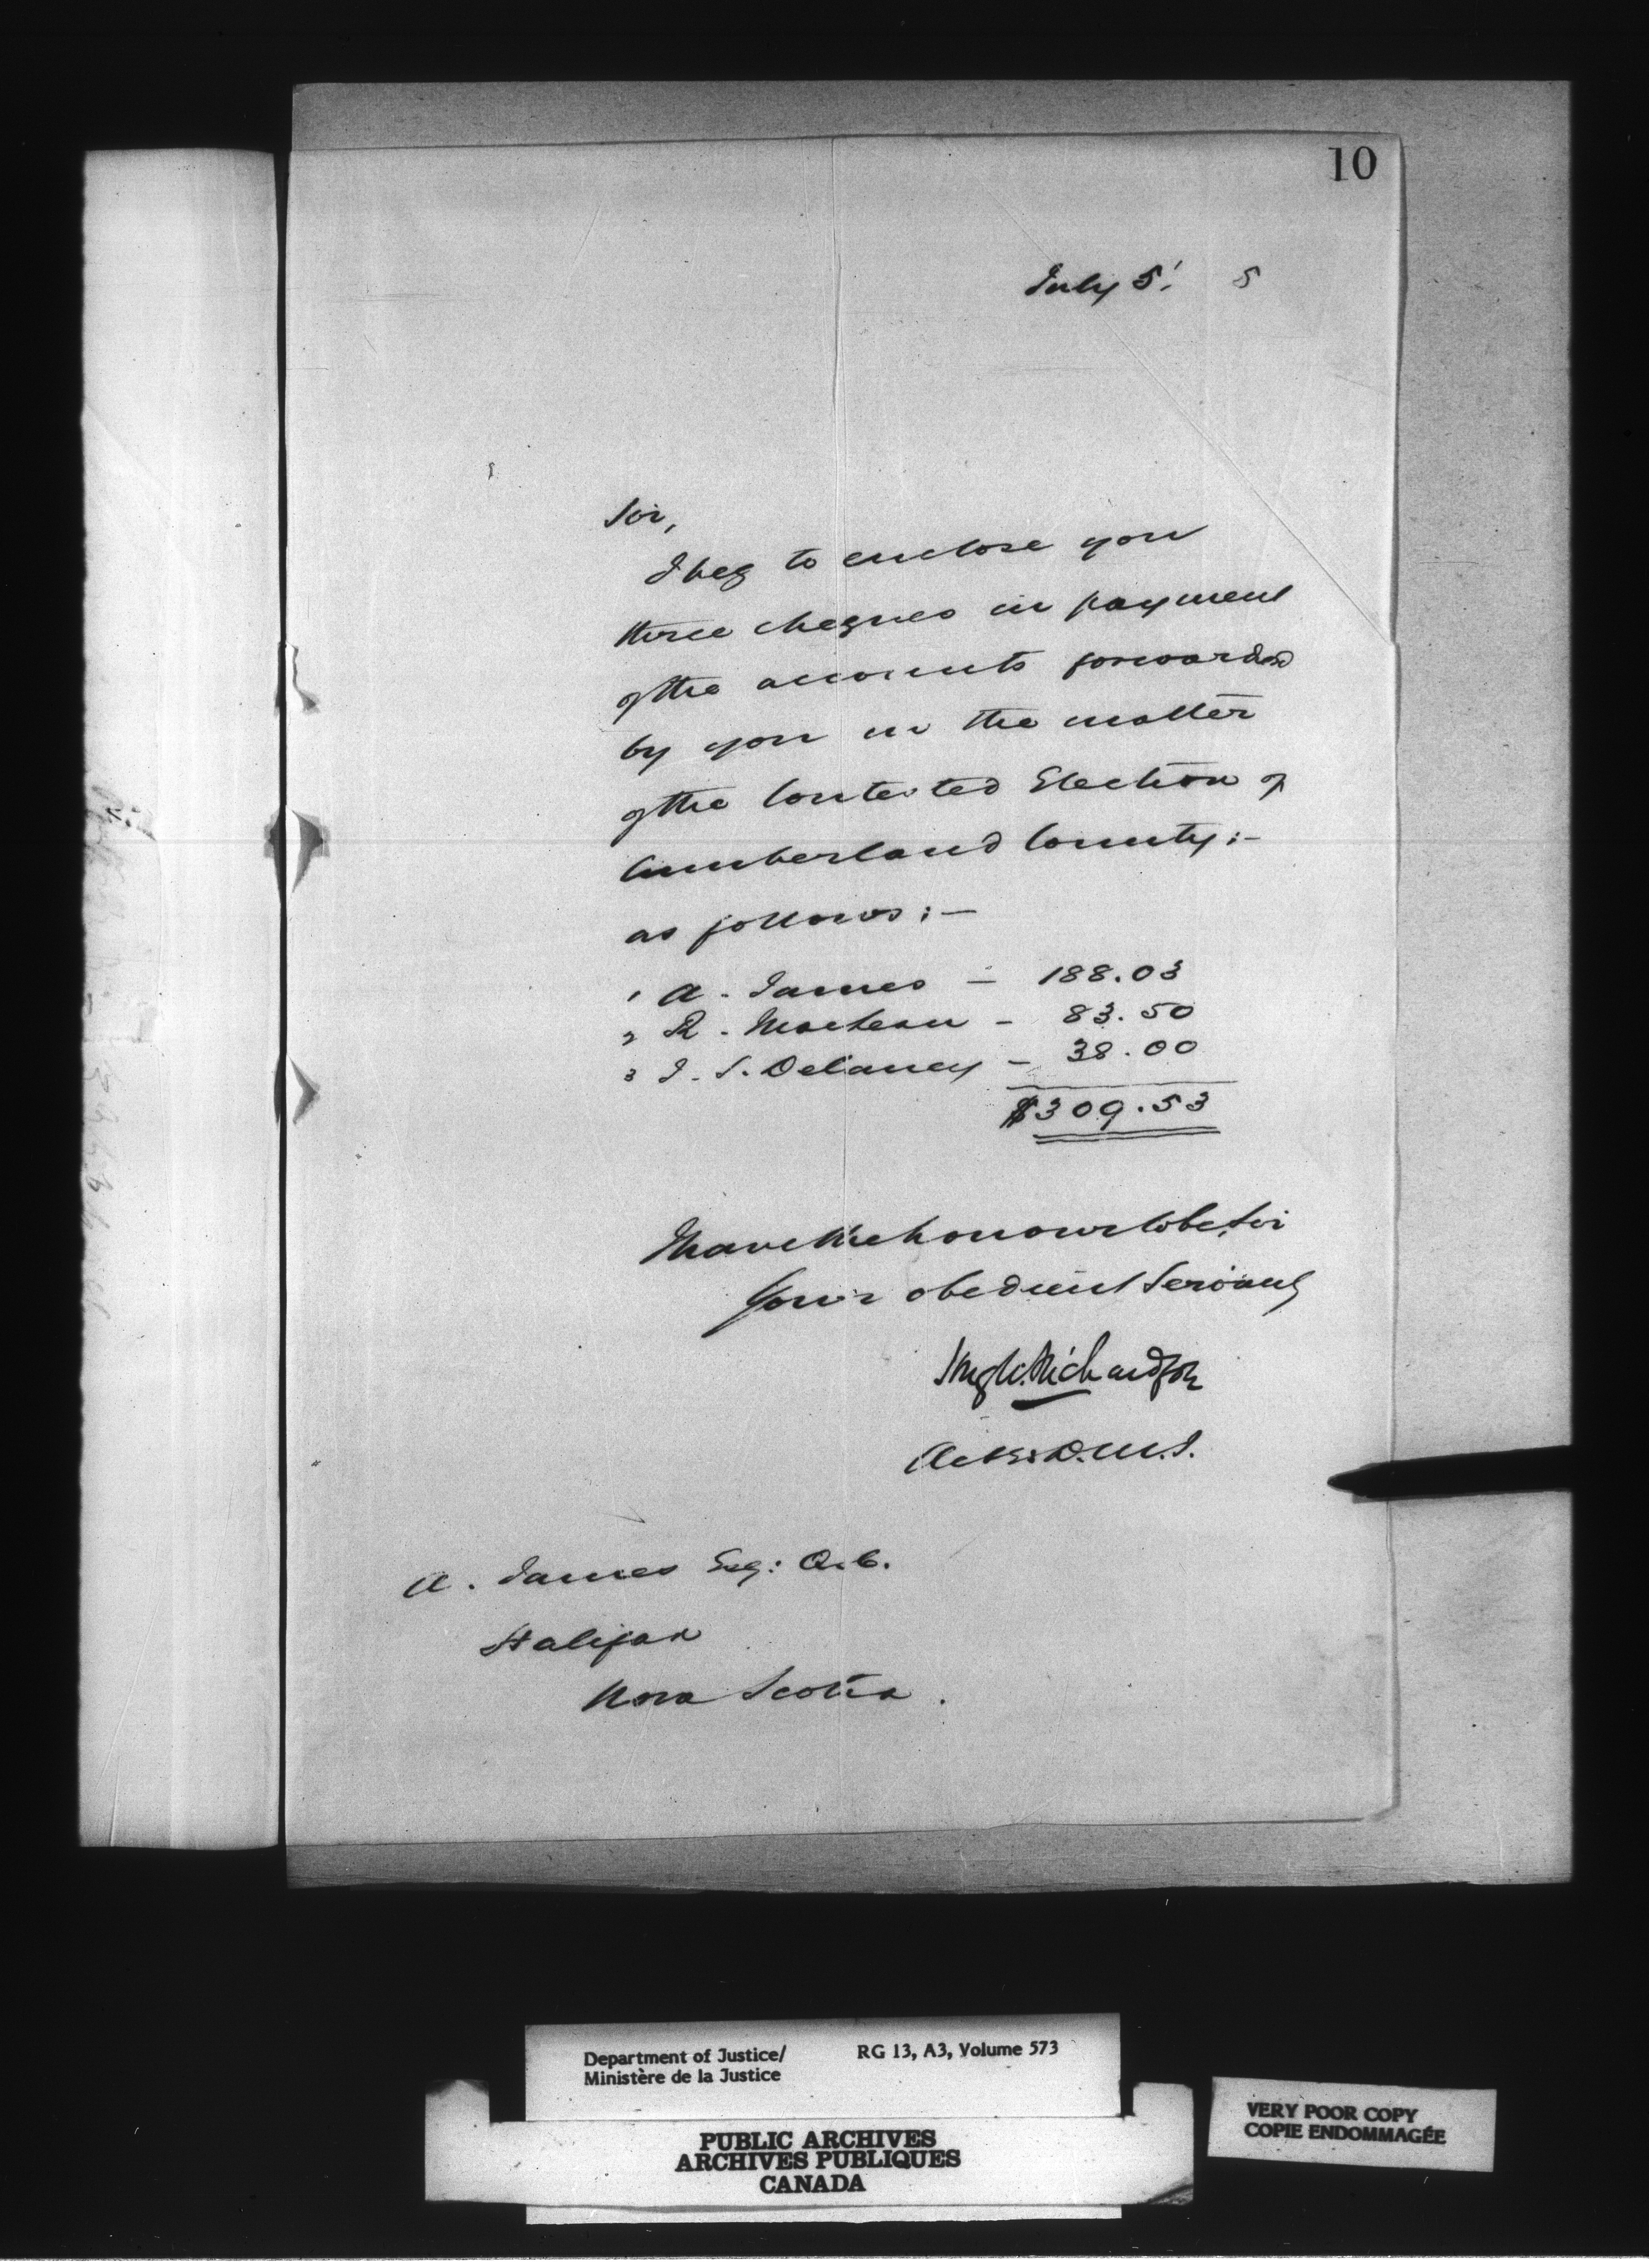 10
July 5! 5
Sir,
I beg to enclose you
three cheques in payment
of the accounts forwarded
by you in the matter
of the Contested Election of
Cumberland County:-
as follows:—
1 A. James — 188.03
2 R. Maclean - 83.50
3 J. S. Delaney — 38.00
$309.53
I have the honour to be, Sir
Your obedient Servant
Hugh Richardson
D.M.J.
A. James Esq: Q.C.
Halifax
Nova Scotia.
Department of Justice/ RG 13, A3, Volume 573
Ministère de la Justice
PUBLIC ARCHIVES
ARCHIVES PUBLIQUES
CANADA
VERY POOR COPY
COPIE ENDOMMAGÉE